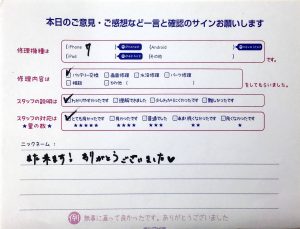 本日のご意見・ご感想など一言と確認のサインお願いします
修理機種は
iPhone 7
Android
iPad
その他
修理内容は
バッテリー交換 画面修理 水没修理 パーツ修理
相談 その他
をしてもらいました。
スタッフの説明は
わかりやすかったです 理解できました 少しわかりにくかったです 難しかったです
スタッフの対応は
★星の数★
とても良かったです 良かったです 普通でした
★★★★★ ★★★★ ★★★ ★★ ★
ニックネーム:
また来ます! ありがとうございました♥
例 無事に直って良かったです。ありがとうございました